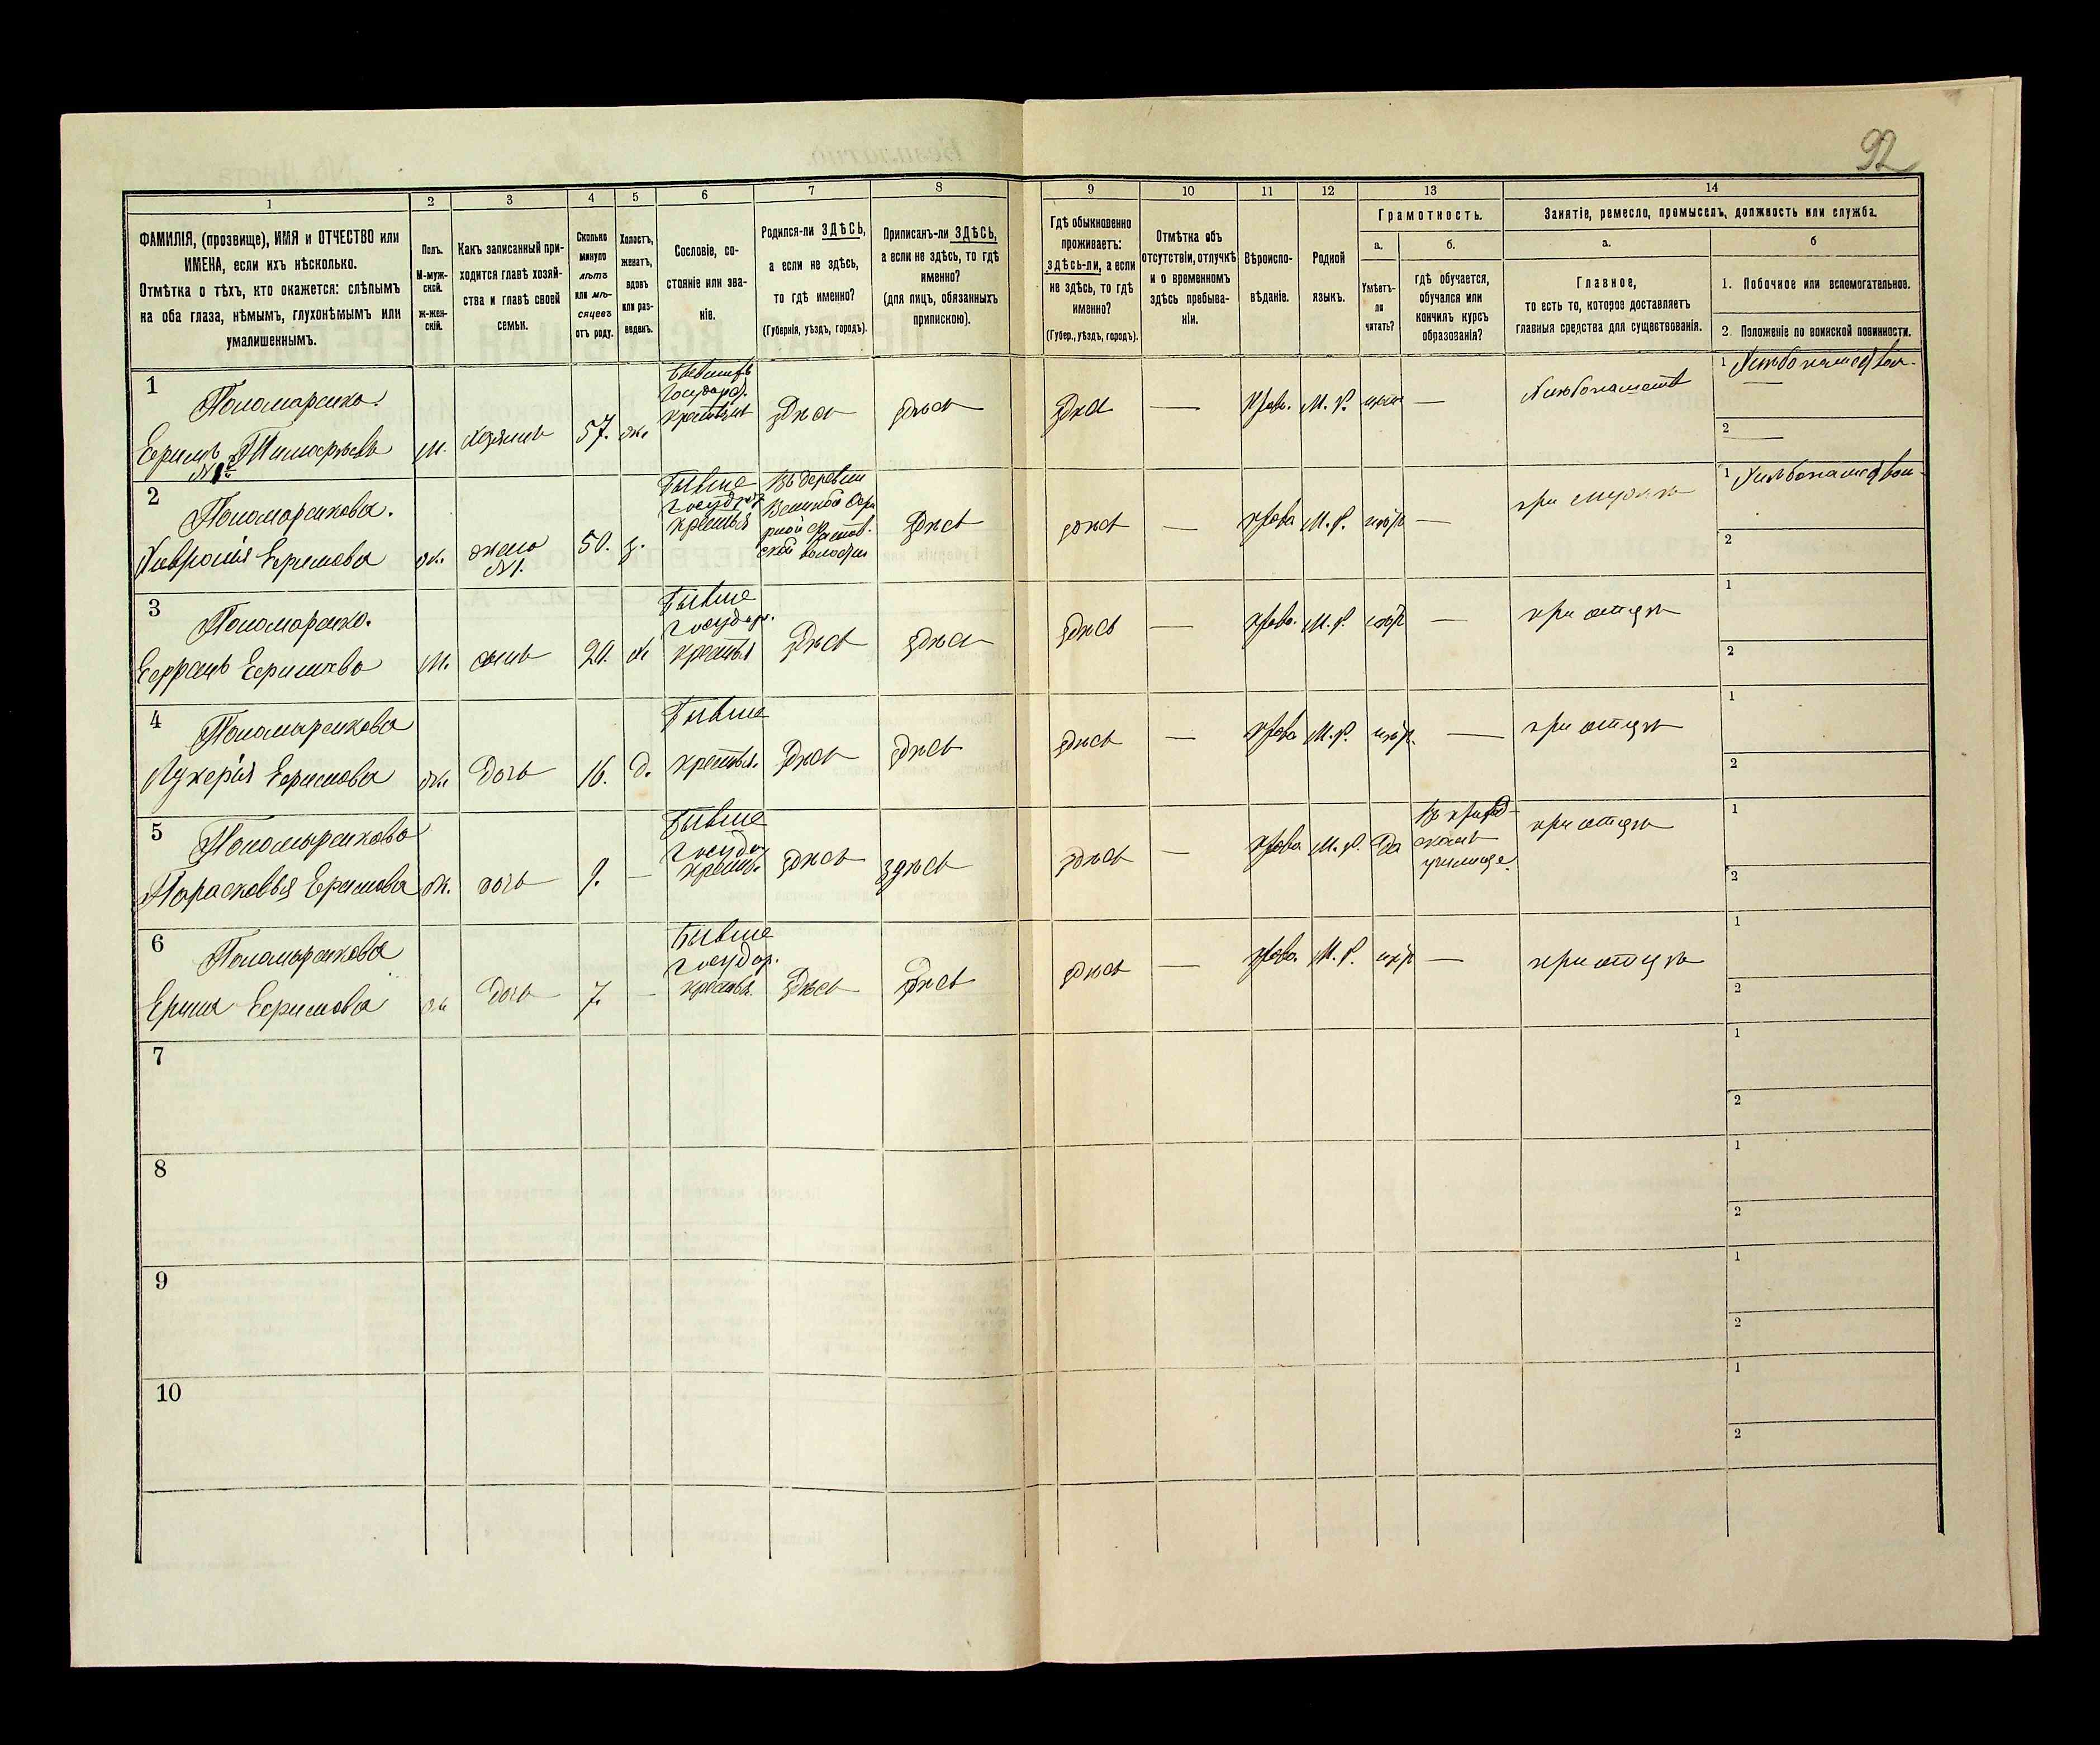 92
1 2 3 4 5 6 7 8 9 10 11 12 13 14
ФАМИЛІЯ, (прозвище), ИМЯ и ОТЧЕСТВО или
ИМЕНА, если ихъ нѣсколько.
Отмѣтка о тѣхъ, кто окажется: слѣпымъ
на оба глаза, нѣмымъ, глухонѣмымъ или
умалишеннымъ.
Полъ.
М-муж-
ской.
ж-жен-
скій.
Какъ записанный при-
ходится главѣ хозяй-
ства и главѣ своей
семьи.
Сколько
минуло
лѣтъ
или мѣ-
сяцевъ
отъ роду.
Холостъ,
женатъ,
вдовъ
или раз-
веденъ.
Сословіе, со-
стояніе или зва-
ніе.
Родился-ли ЗДѢСЬ,
а если не здѣсь,
то гдѣ именно?
(Губернія, уѣздъ, городъ).
Приписанъ-ли ЗДѢСЬ,
а если не здѣсь, то гдѣ
именно?
(для лицъ, обязанныхъ
припискою).
Гдѣ обыкновенно
проживаетъ:
здѣсь-ли, а если
не здѣсь, то гдѣ
именно?
(Губер., уѣздъ, городъ).
Отмѣтка объ
отсутствіи, отлучкѣ
и о временномъ
здѣсь пребыва-
ніи.
Вѣроиспо-
вѣданіе.
Родной
языкъ.
Грамотность.
а.
Умѣетъ-
ли
читать?
б.
гдѣ обучается,
обучался или
кончилъ курсъ
образованія?
Занятіе, ремесло, промыселъ, должность или служба.
а.
Главное,
то есть то, которое доставляетъ
главныя средства для существованія.
б
1. Побочное или вспомогательное.
2. Положеніе по воинской повинности.
1
Пономаренко.
Ефимъ
м. хозяинъ 57. ж.
Государ.
здѣсь здѣсь здѣсь — Прав. М. Р. —
1
2
2
Пономаренкова.
Ефимова
ж. жена
№1. 50. з.
Бывше
Государ.
Въ деревни
здѣсь здѣсь — права М. Р. —
1
2
3
Пономаренко.
Ефимовъ
м. сынъ 20.
Бывше
государ.
здѣсь здѣсь здѣсь — права. М. Р. — при отцѣ
1
2
4
Пономаренкова
Лукерія Ефимова
ж. дочь 16. д.
Бывше
крестья.
здѣсь здѣсь здѣсь — права М. Р. — при отцѣ
1
2
5
Пономаренкова
Парасковья Ефимова
ж. дочь 9. —
Бывше
здѣсь здѣсь здѣсь — права М. Р. да
училище.
при отцѣ
1
2
6
Пономаренкова
Ефимова
ж. дочь 7. —
Бывше
государ.
здѣсь здѣсь здѣсь — права. М. Р. — при отцѣ
1
2
7
1
2
8
1
2
9
1
2
10
1
2